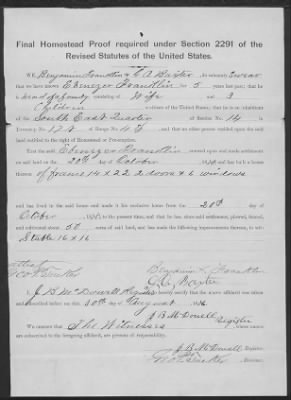 Final Homestead Proof required under Section 2291 of the
Revised Statutes of the United States.
WE, Benjamin Franklin & C A Baxter, do solemnly swear
that we have known Ebenezer Franklin for 5 years last past; that he
is head of a family consisting of Wife and 3
Children a citizen of the United States; that he is an inhabitant
of the South East Quarter of Section No. 14 in
Township No. 12 S of Range No. 4 E, and that no other person resided upon the said
land entitled to the right of Homestead or Pre-emption.
That the said Ebenezer Franklin entered upon and made settlement
on said land on the 20th day of October, and has built a house
thereon
of frame 14 x 22 2 doors & 6 windows
and has lived in the said house and made it his exclusive home from the 20th day of
October, to the present time, and that he has, since said settlement, plowed, fenced,
and cultivated about 50 acres of said land, and has made the following improvements thereon, to wit:
Stable 16 x 16
Benjamin Franklin
C. A. Baxter
I, J B McDowell Register do hereby certify that the above affidavit was taken and
subscribed before me this 10th day of August
J B McDowell
Register
WE CERTIFY that The Witnesses whose names
are subscribed to the foregoing affidavit, are persons of respectability.
J B McDowell Register.
Receiver.